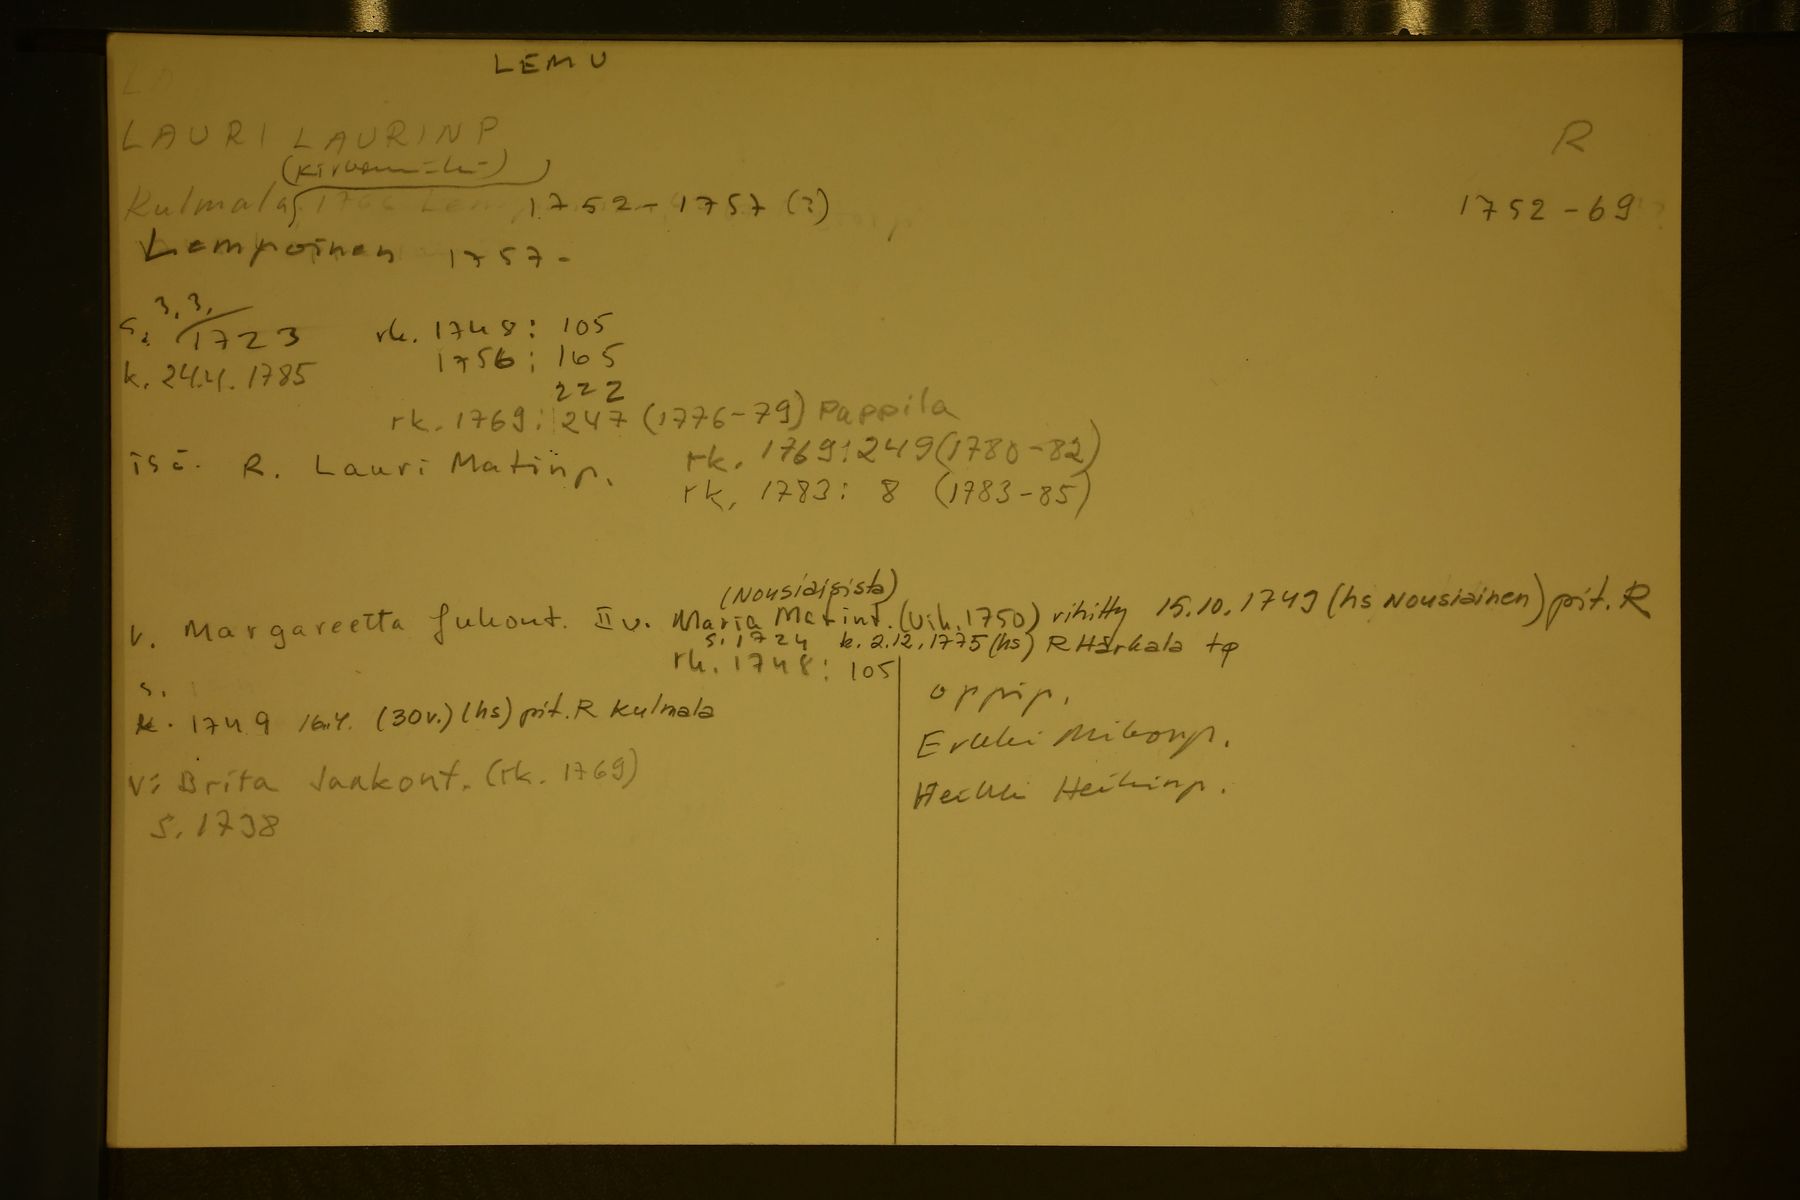 LEMU
LAURI LAURINP R
Kulmala 1752-1757 (?) 1752-69
Lempoinen 1757-
s. 3.3. 1723 rk. 1748: 105
k. 24.4. 1785 1756: 165
222
rk. 1769: 247 (1776-79) Pappila
isä. R. Lauri Matinp. rk. 1769: 249 (1780-82)
rk. 1783: 8 (1783-85)
(Nousiaisista)
v. Margareetta Juhont. II v. Maria Matint. (vih. 1750) vihitty 15.10.1749 (hs Nousiainen) pit. R
s. 1724 k. 2.12.1775 (hs) R Härkala
rk. 1748: 105
s.
k. 1749 16.4. (30v.) (hs) pit. R Kulmala
oppip.
Erkki Mikonp.
v: Brita Jaakont. (rk. 1769)
Heikki Heikinp.
s. 1738